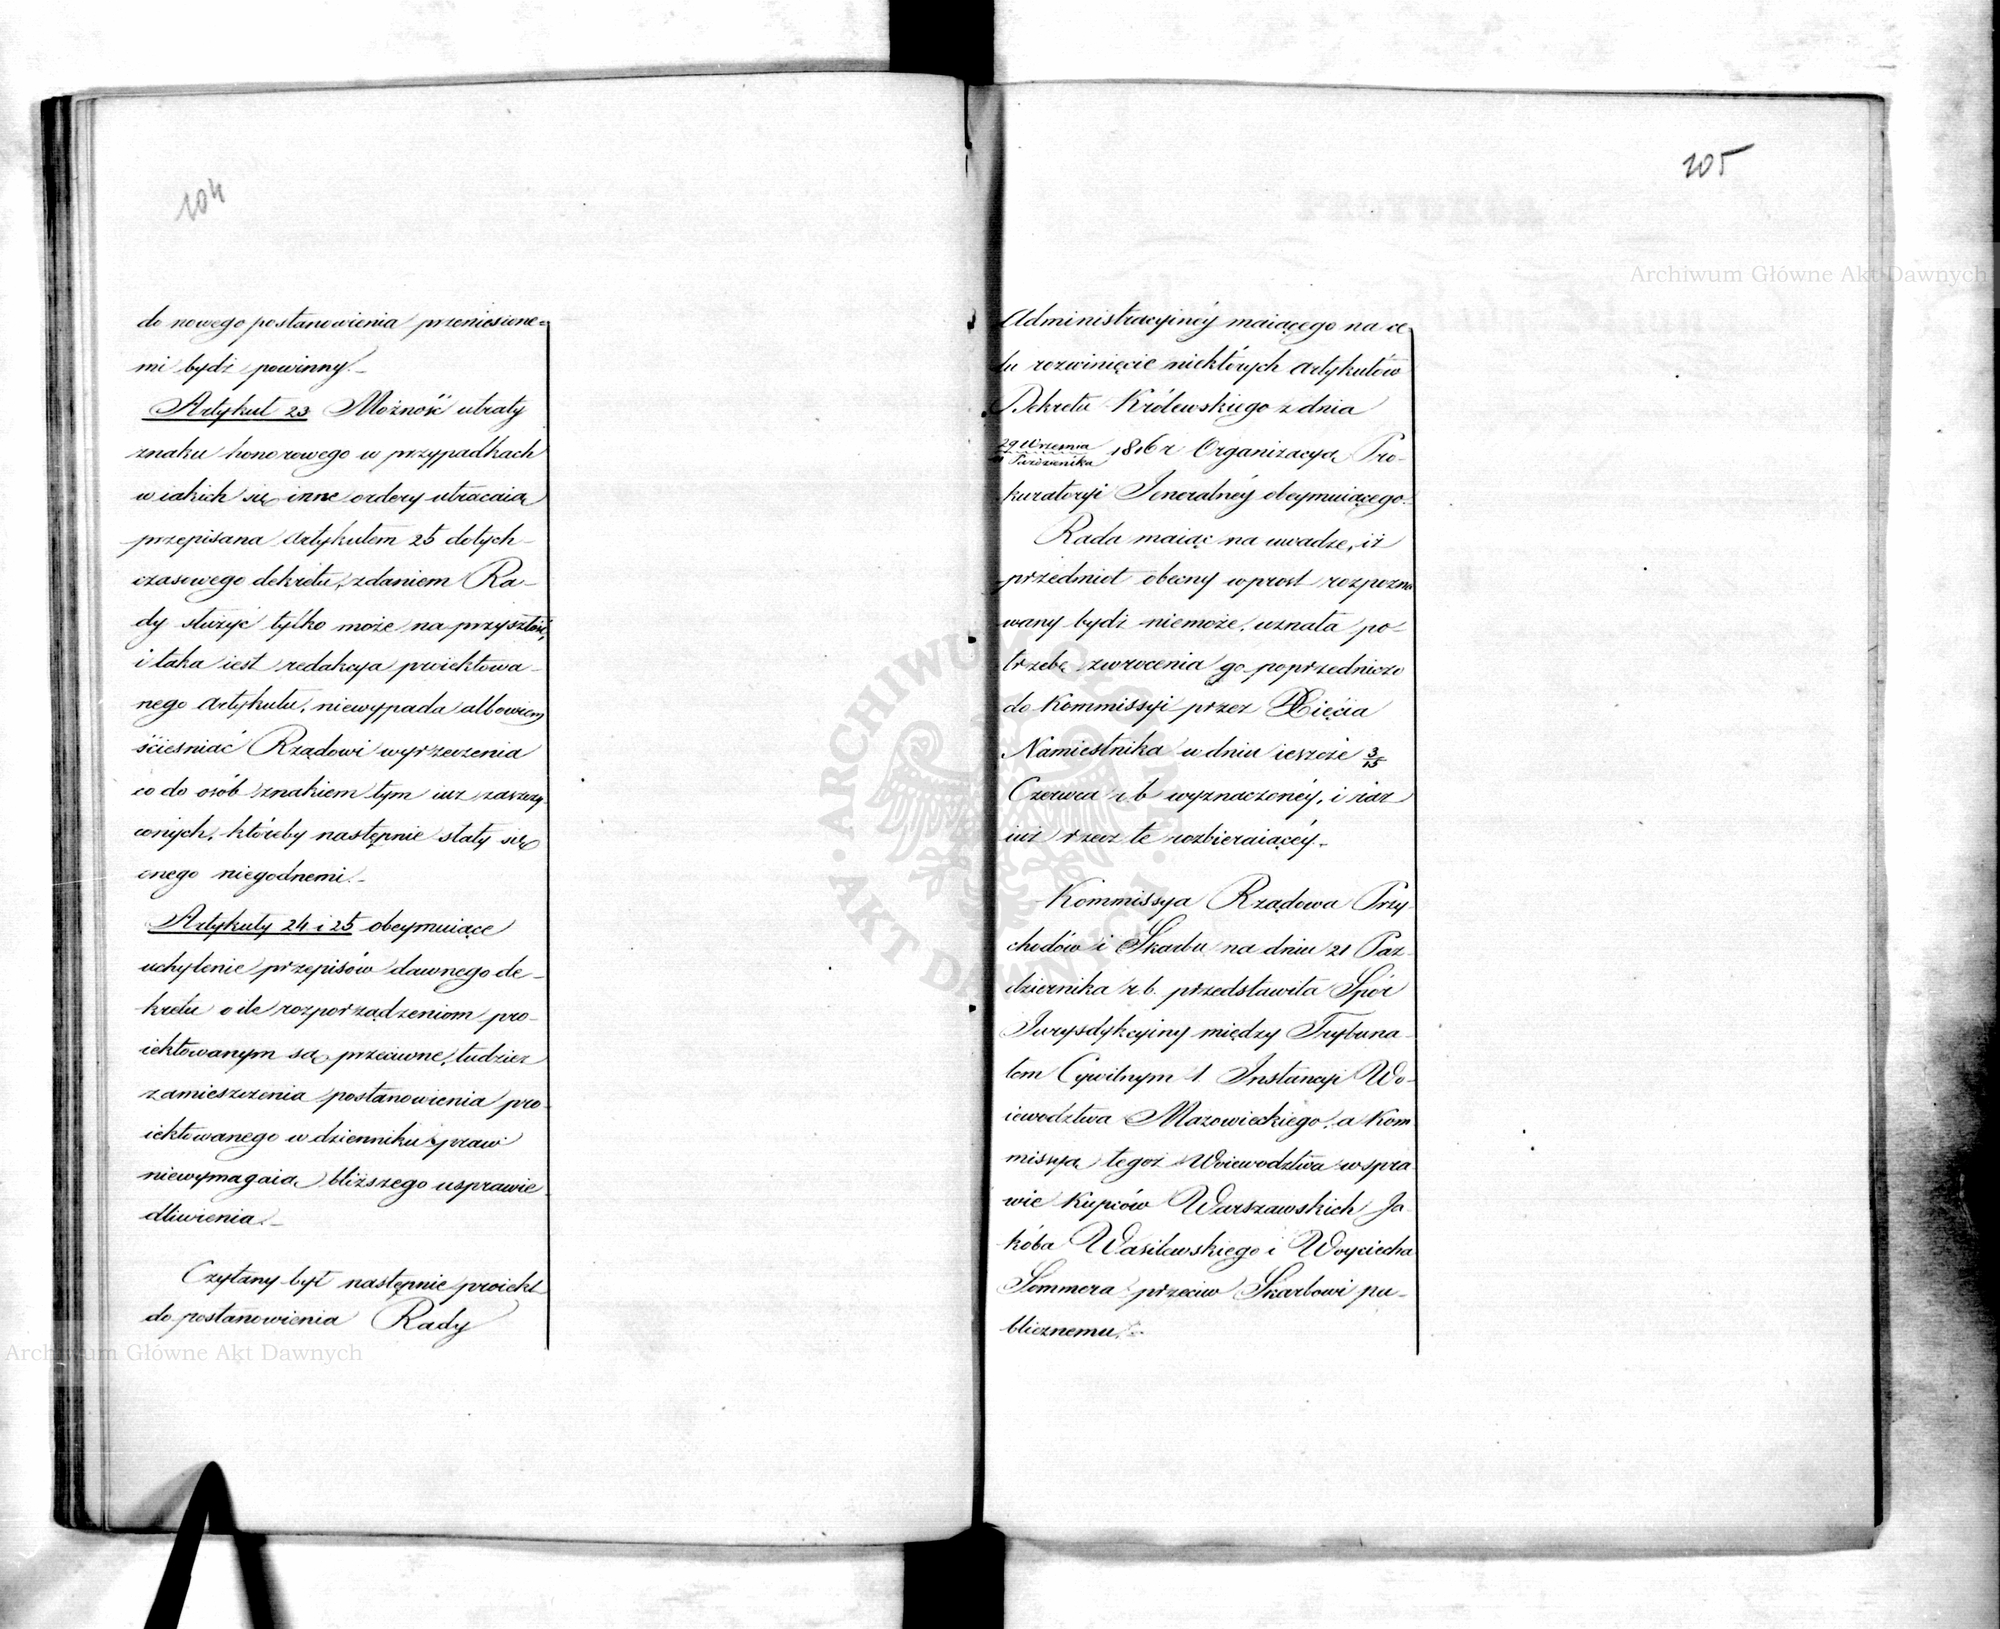 104
do nowego postanowienia przeniesione-
mi bydź powinny.-
Artykuł 23 Możność utraty
znaku honorowego w przypadkach
w iakich się inne ordery utracaią
przepisana Artykułem 25 dotych-
czasowego dekretu, zdaniem Ra-
dy służyć tylko może na przyszłość,
i taka iest redakcya proiektowa-
nego Artykułu, niewypada albowiem
ścieśniać Rządowi wyrzeczenia
co do osób znakiem tym iuż zaszczy-
conych, któreby następnie stały się
onego niegodnemi.-
Artykuły 24 i 25 obeymuiące
uchylenie przepisów dawnego de-
kretu o ile rozporządzeniom pro-
iektowanym są przeciwne, tudzież
zamieszczenia postanowienia pro-
iektowanego w dzienniku praw
niewymagaią bliższego usprawie-
dliwienia.-
Czytany był następnie proiekt
do postanowienia Rady
105
Administracyiney maiącego na ce-
lu rozwinięcie niektórych Artykułów
Dekretu Królewskiego z dnia
29 Września
11 Października 1816 r Organizacyą Pro-
kuratoryi Jeneralney obeymuiącego.
Rada maiąc na uwadze, iż
przedmiot obecny wprost rozpozna
wany bydź niemoże, uznała po-
trzebę zwrócenia go poprzedniczo
do Kommissyi przez Xięcia
Namiestnika w dniu ieszcze 3/15
Czerwca r b wyznaczoney, i raz
iuż rzecz tę rozbieraiącey.-
Kommissya Rządowa Przy-
chodów i Skarbu na dniu 21 Paź-
dziernika r.b. przedstawiła Spór
Jurysdykcyiny między Trybuna-
łem Cywilnym 1. Instancyi Wo-
iewództwa Mazowieckiego, a Kom
missyą tegoż Woiewództwa w spra
wie Kupców Warszawskich Ja-
kóba Wasilewskiego i Woyciecha
Sommera przeciw Skarbowi pu-
blicznemu.-
Archiwum Główne Akt Dawnych
Archiwum Główne Akt Dawnych
ARCHIWUM GŁÓWNE AKT DAWNYCH